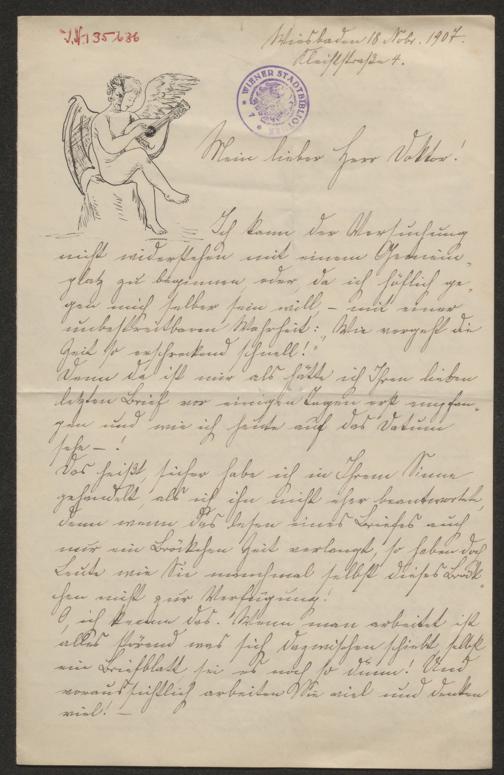 I.N. 135636
Wiesbaden 18 Nobr. 1907.
Kleiststraße 4.
WIENER STADTBIBLIOTHEK
Mein lieber Herr Doktor!
Ich kann der Versuchung
nicht widerstehen mit einem Gemein-
platz zu beginnen oder, da ich höflich ge-
gen mich selber sein will – mit einer
unbestreitbaren Wahrheit: "Wie vergeht die
Zeit so erschreckend schnell!"
Denn da ist mir als hätte ich Ihren lieben
letzten Brief vor einigen Tagen erst empfan-
gen und wie ich heute auf das Datum
sehe – !
Das heißt, sicher habe ich in Ihrem Sinne
gehandelt, als ich ihn nicht eher beantwortete,
denn wenn das Lesen eines Briefes auch
nur ein Bröckchen Zeit verlangt, so haben doch
Leute wie Sie manchmal selbst dieses Bröck-
chen nicht zur Verfügung!
O, ich kenne das. Wenn man arbeitet ist
alles störend was sich dazwischen schiebt, selbst
ein Briefblatt sei es noch so dünn! Und
voraussichtlich arbeiten Sie viel und denken
viel! –